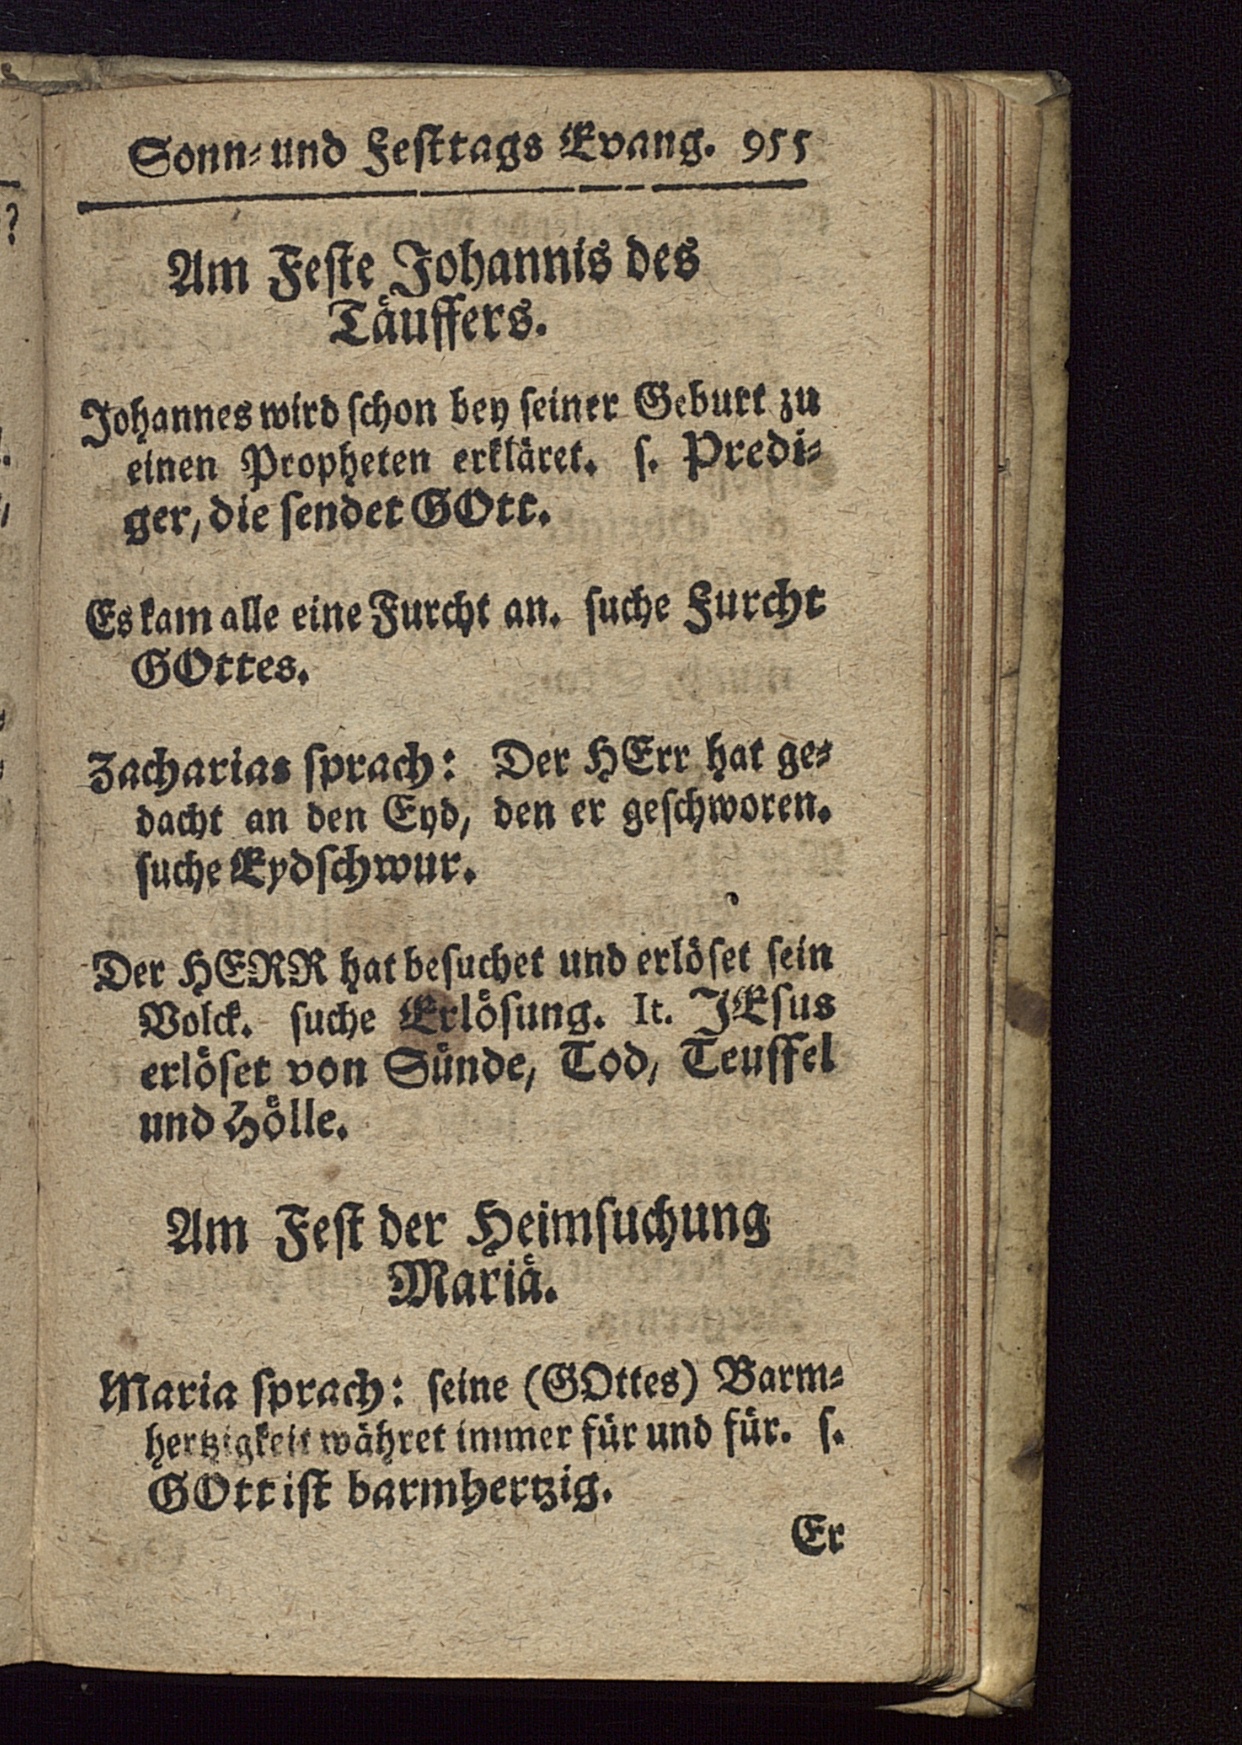 Sonn- und Festtags Evang. 955
Am Feste Johannis des
Täuffers.
Johannes wird schon bey seiner Geburt zu
einen Propheten erkläret. s. Predi-
ger, die sendet GOtt.
Es kam alle eine Furcht an. suche Furcht
GOttes.
Zacharias sprach: Der HErr hat ge-
dacht an den Eyd, den er geschworen.
suche Eydschwur.
Der HERR hat besuchet und erlöset sein
Volck. suche Erlösung. It. JEsus
erlöset von Sünde, Tod, Teuffel
und Hölle.
Am Fest der Heimsuchung
Mariä.
Maria sprach: seine (GOttes) Barm-
hertzigkeit währet immer für und für. s.
GOtt ist barmhertzig.
Er